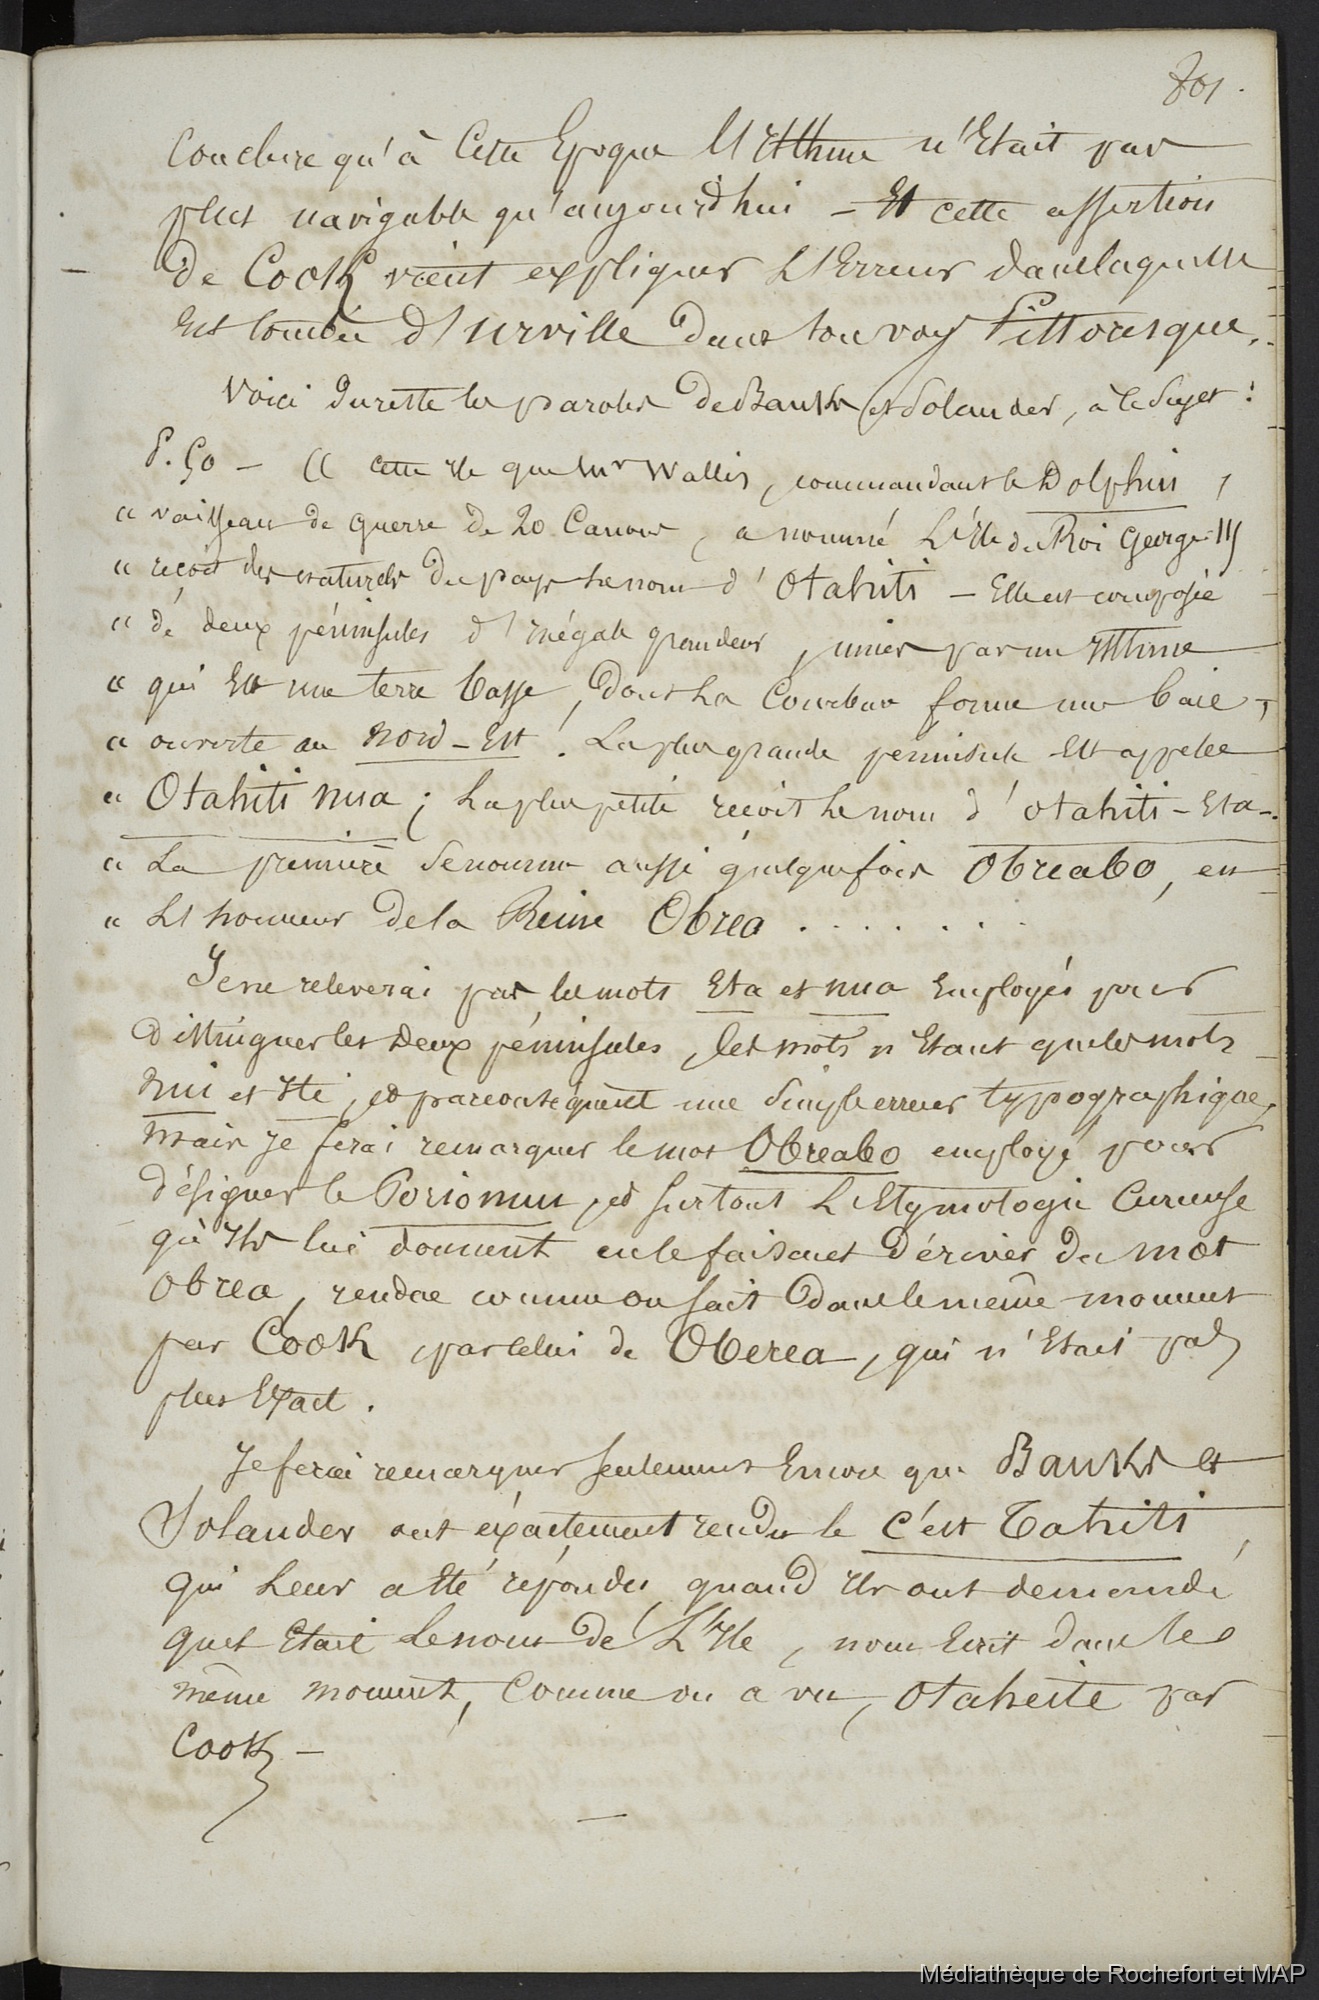 801.
Conclure qu'à Cette Epoque l'Isthme n'Etait pas
plus navigable qu'aujourd'hui – Et cette assertion
de Cook vient expliquer L'Erreur dans laquelle
Est tombé d'Urville Dans son voy Pittoresque.
Voici Du reste les paroles De Banks et Solander, à ce Sujet :
P. 50 – « cette Ile que Mr Wallis, commandant le Dolphin,
« vaisseau de guerre de 20 Canons, a nommé L'Ile du Roi George III
« reçoit des naturels du pays le nom d'Otahiti – Elle est composée
« de deux péninsules d'Inégale grandeur, unies par un Isthme
« qui Est une terre basse, dont La Courbure forme une baie,
« ouverte au Nord-Est. La plus grande péninsule Est appelée
« Otahiti nua ; La plus petite reçoit le nom d'otahiti-Eta-.
« La première Se nomme aussi quelquefois Obreabo, en
« L'honneur de la Reine Obrea . . . . . . .
Je ne releverai pas les mots Eta et nua Employés pour
Distinguer les Deux péninsules, les mots n'Etant que les mots
Nui et Iti, et par conséquent une Simple erreur typographique,
Mais Je ferai remarquer le mot Obreabo employé pour
Désigner le Porionuu, et surtout L'Etymologie Curieuse
qu'Ils lui donnent en le faisant Dériver du mot
Obrea, rendue comme on sait Dans le même moment
par Cook, par celui de Oberea, qui n'Etait pas
plus Exact.
Je ferai remarquer seulement Encore que Banks et
Solander ont éxactement rendu le C'est Tahiti
qui Leur a Eté répondu, quand Ils ont demandé
quel Etait le nom de L'Ile, nom Ecrit dans le
même moment, Comme on a vu, Otaheite par
Cook –
Médiathèque de Rochefort et MAP